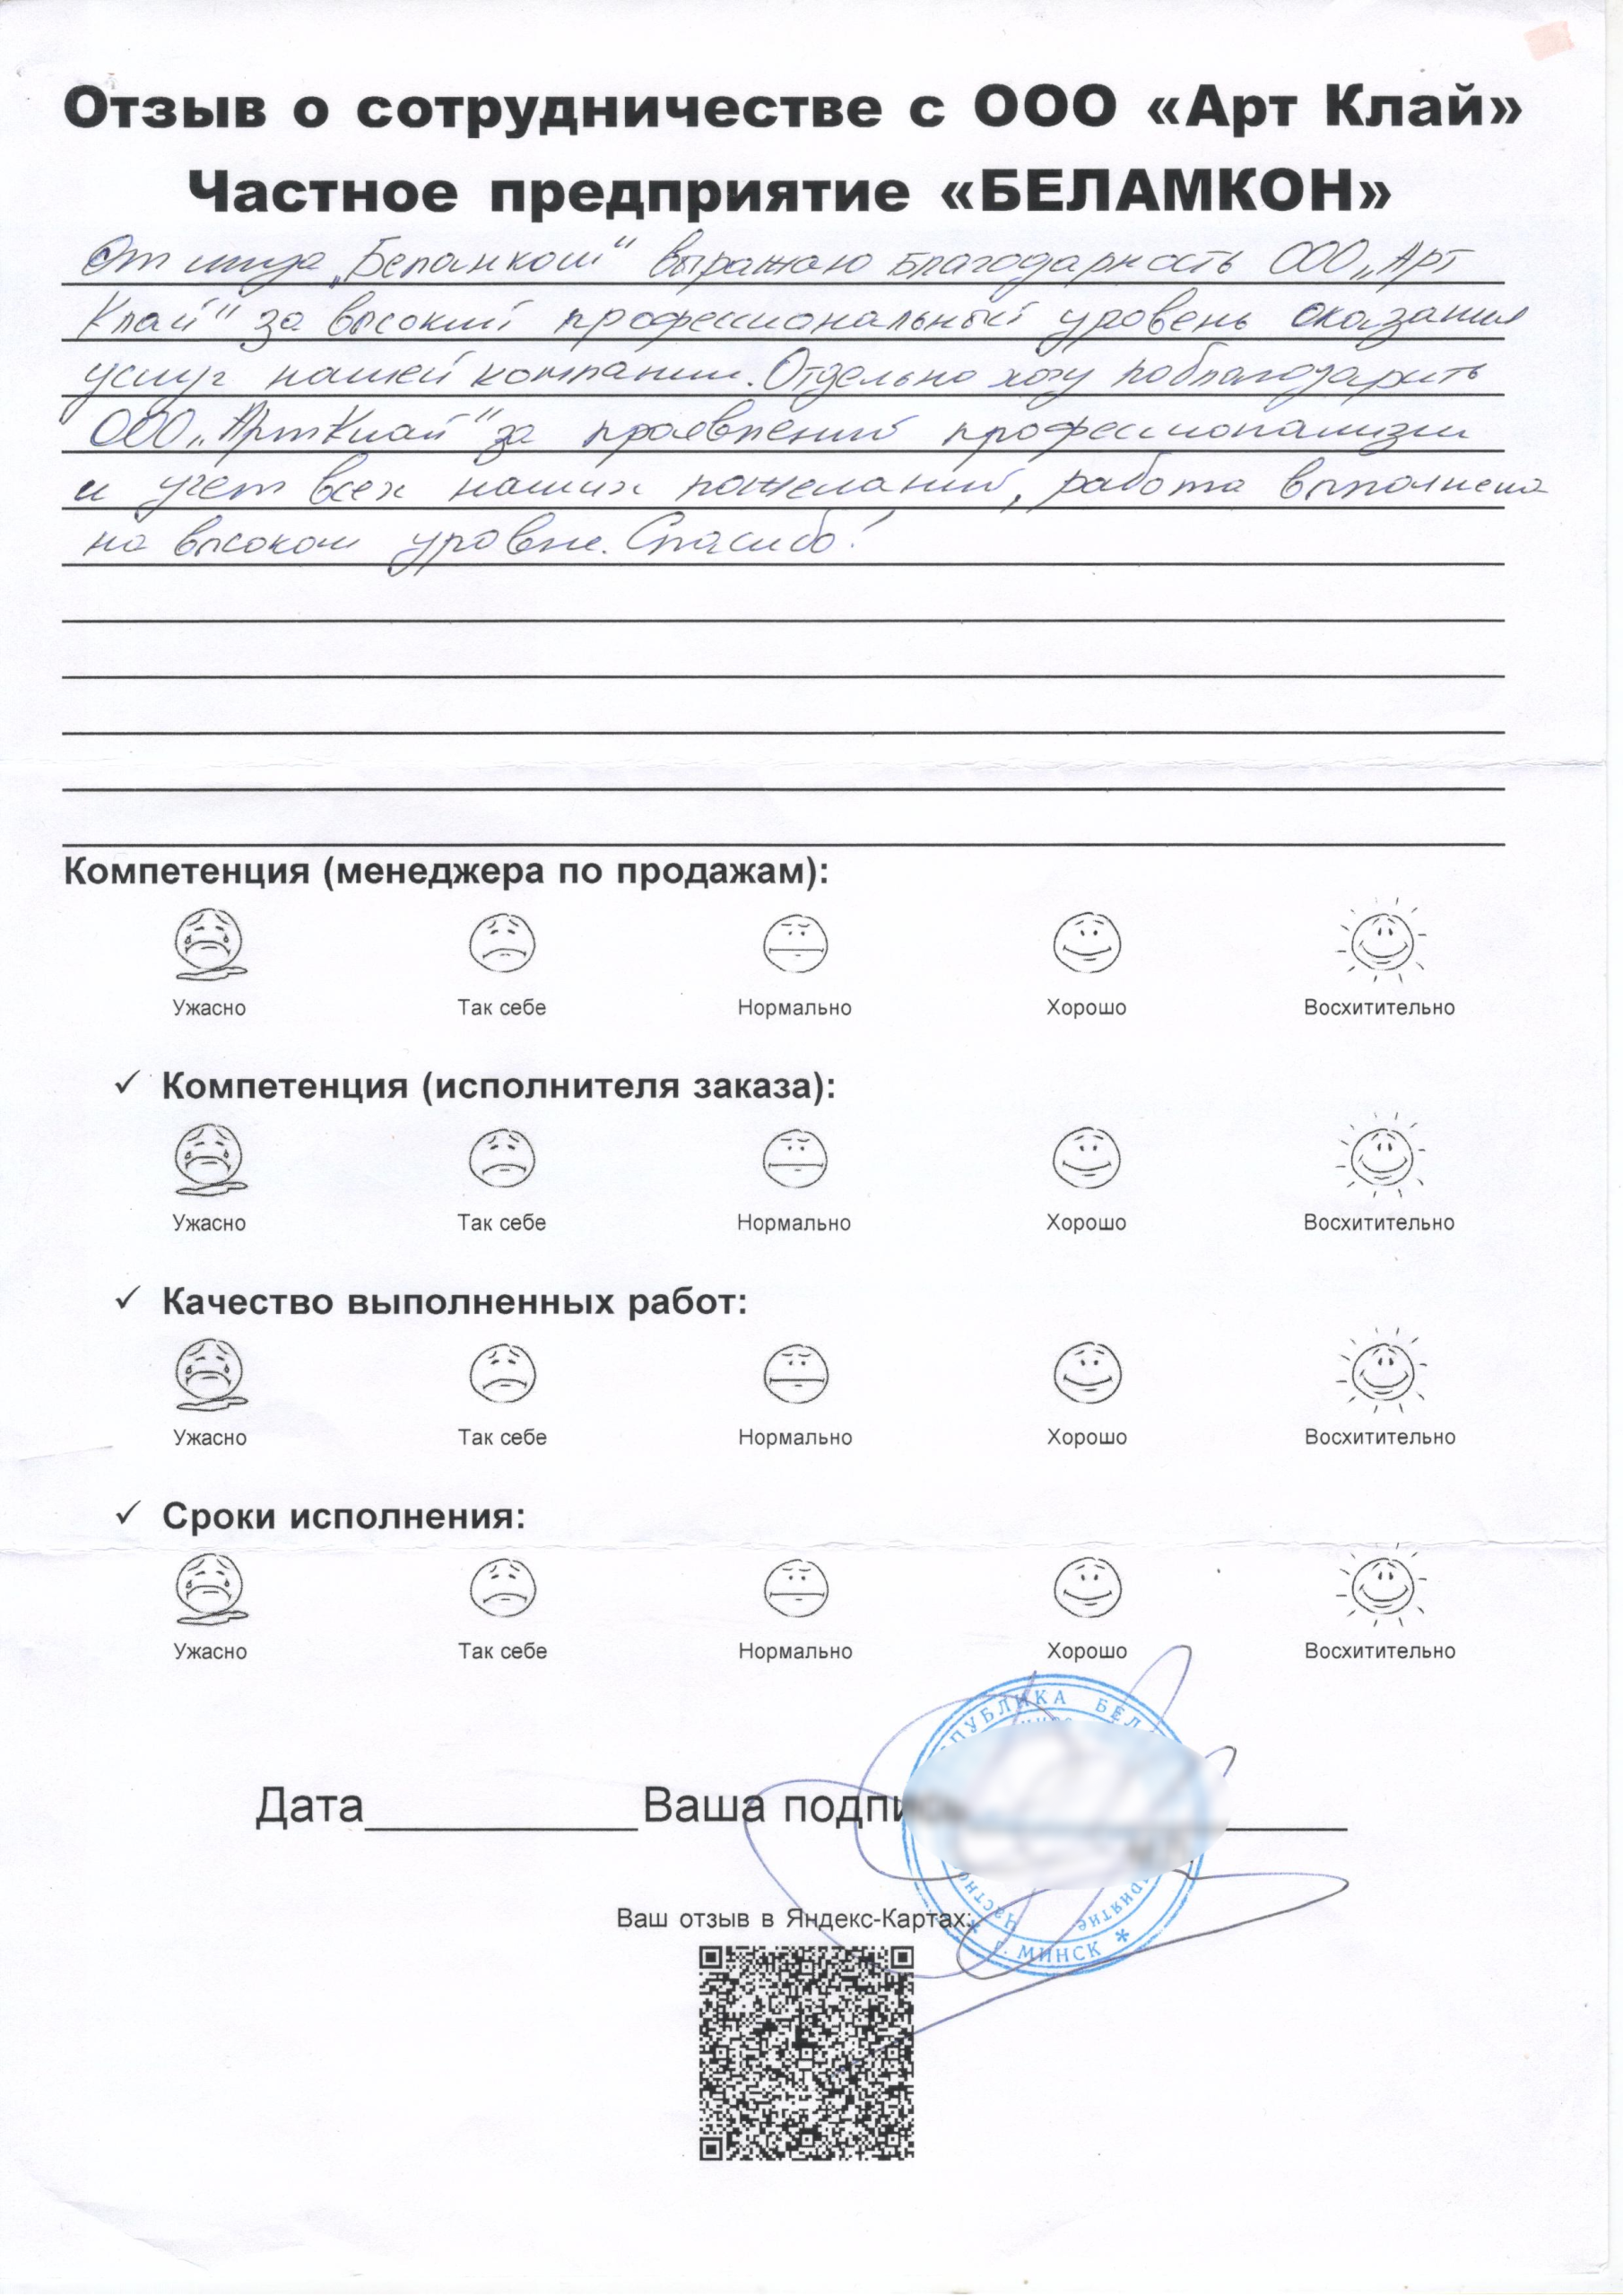 Отзыв о сотрудничестве с ООО «Арт Клай»
Частное предприятие «БЕЛАМКОН»
От лица „Беламкон“ выражаю благодарность ООО „Арт
Клай“ за высокий профессиональный уровень оказания
услуг нашей компании. Отдельно хочу поблагодарить
ООО „Арт Клай“ за проявлений профессионализм
и учет всех наших пожеланий, работа выполнена
на высоком уровне. Спасибо!
Компетенция (менеджера по продажам):
Ужасно Так себе Нормально Хорошо Восхитительно
✓ Компетенция (исполнителя заказа):
Ужасно Так себе Нормально Хорошо Восхитительно
✓ Качество выполненных работ:
Ужасно Так себе Нормально Хорошо Восхитительно
✓ Сроки исполнения:
Ужасно Так себе Нормально Хорошо Восхитительно
Дата Ваша
Ваш отзыв в Яндекс-Картах:
г. МИНСК